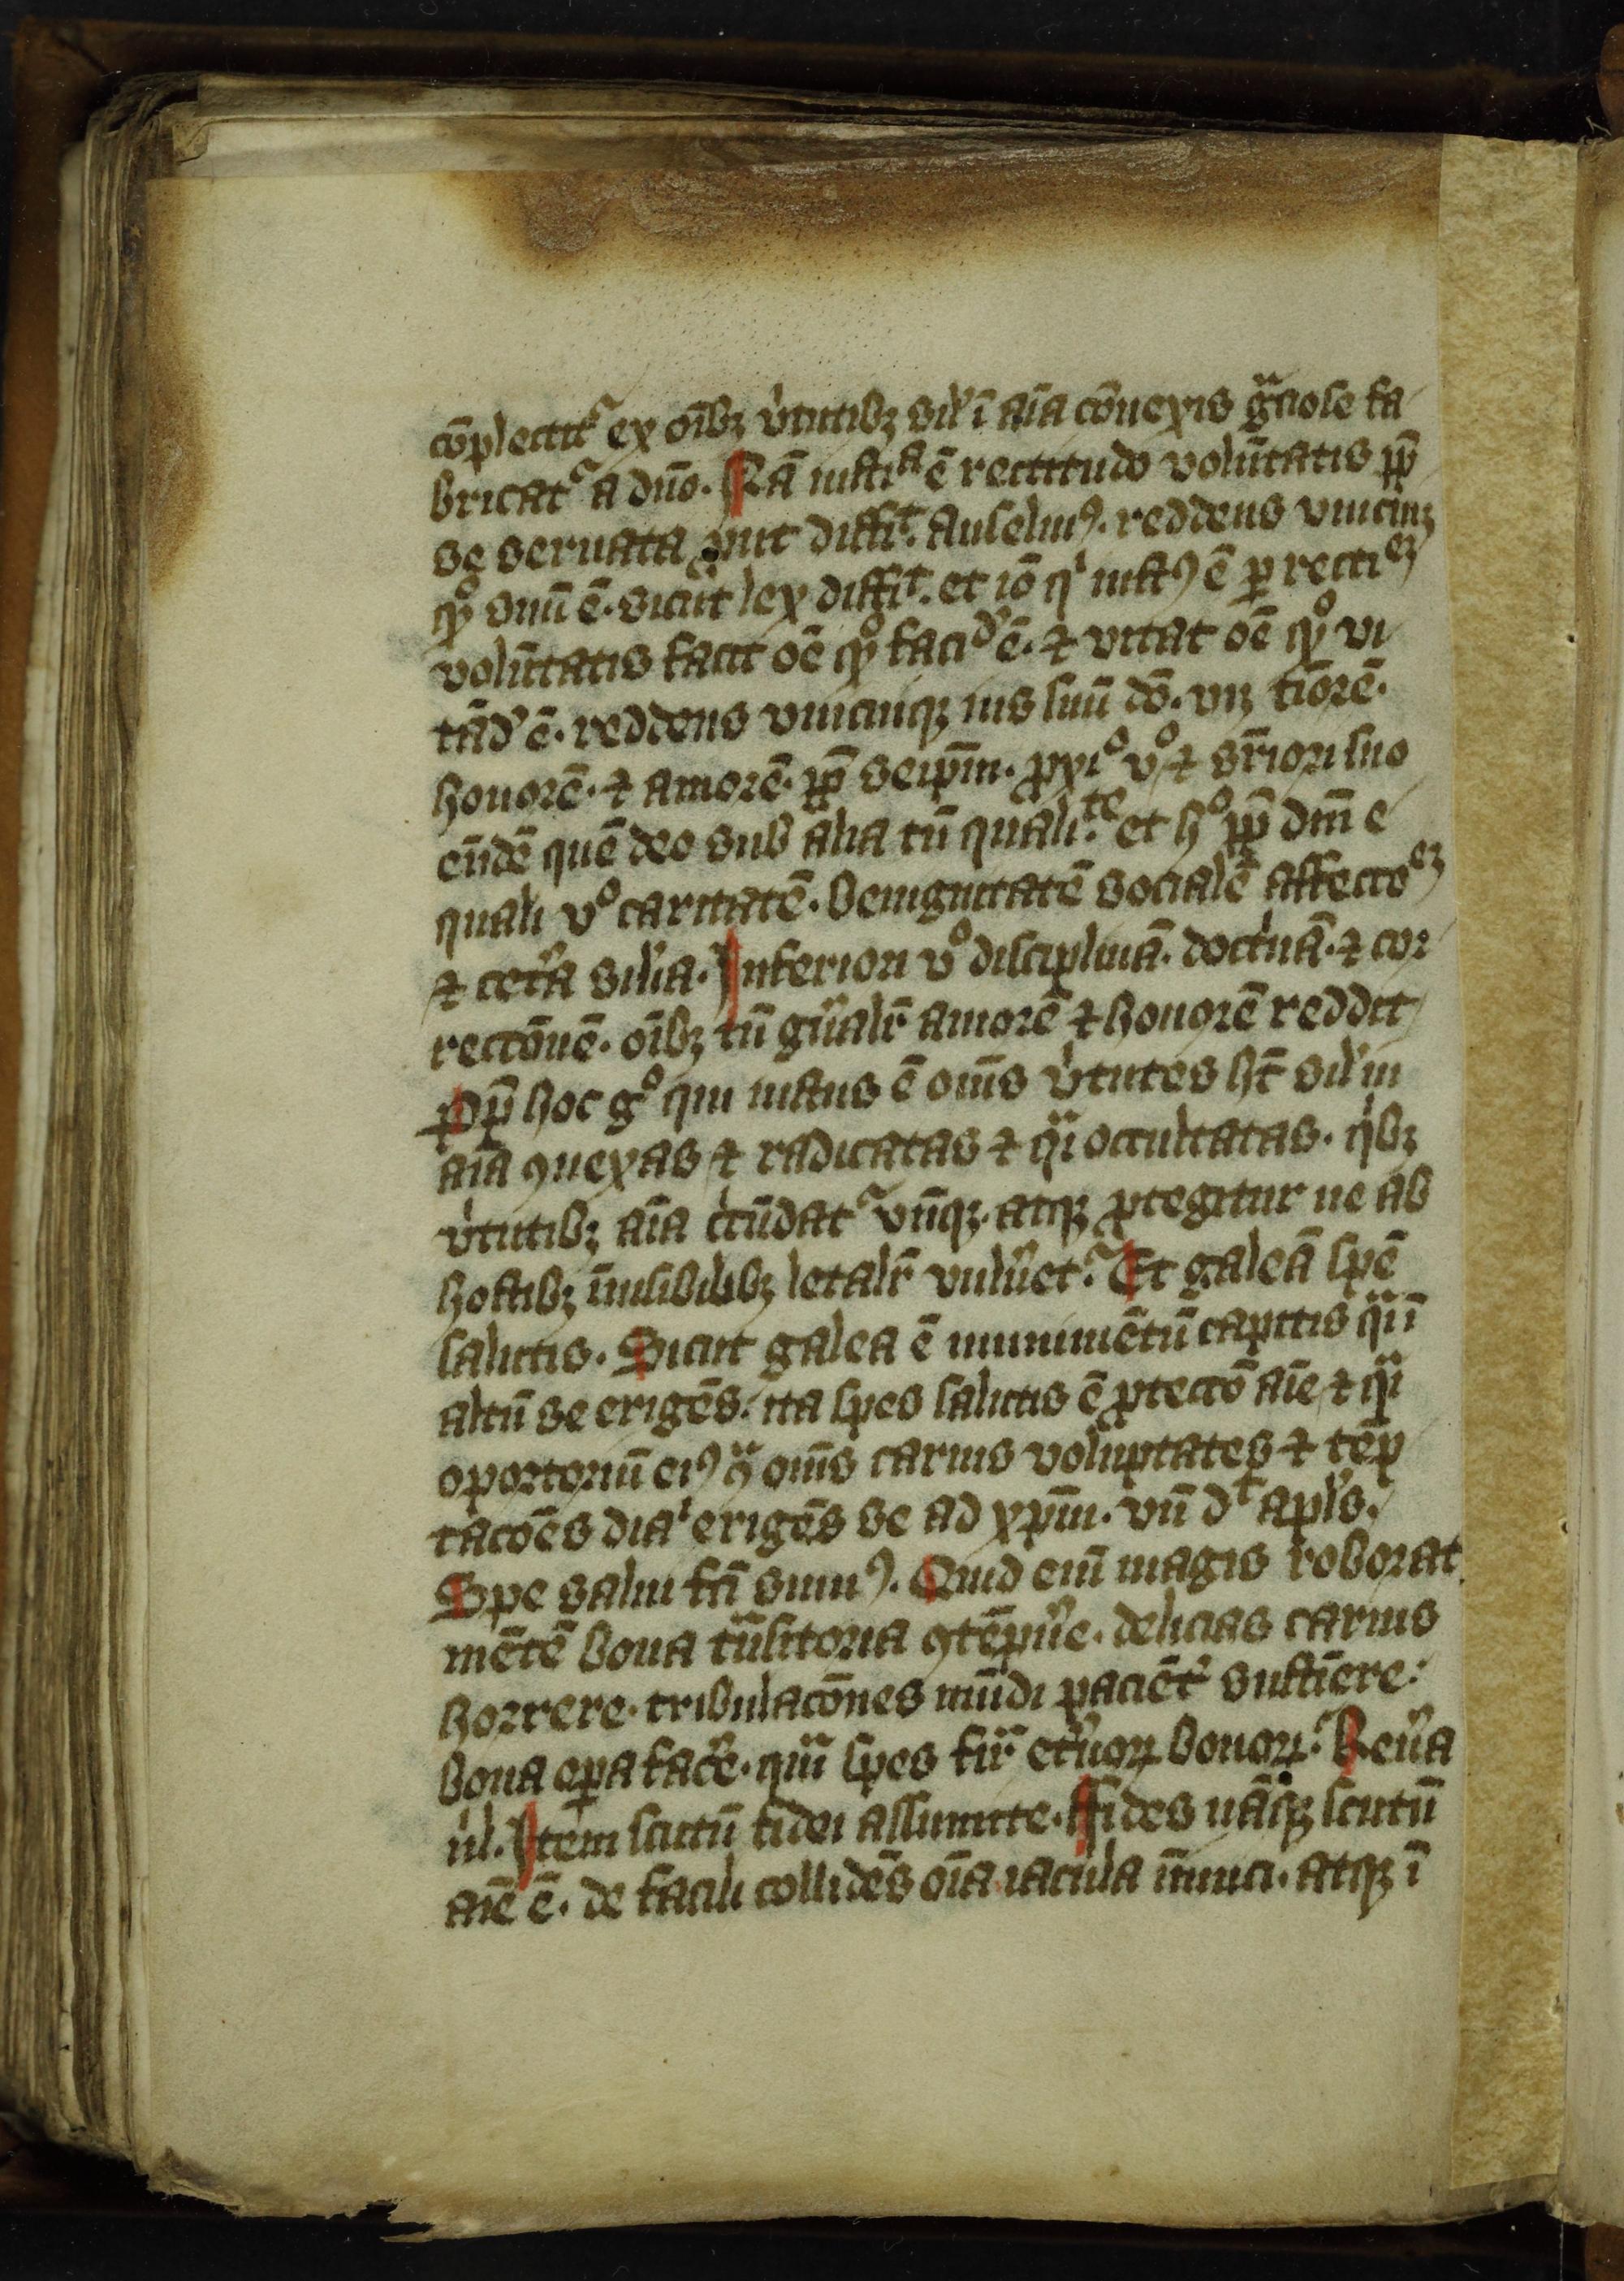 cōplectit᷑ ex oībꝫ v̓tutibꝫ sil̓ ī aīa cōnexis gͣciose fa
bricat᷑ a dn̄o. Nā iustiͣ ē rectitudo volūtatis ꝓp̄
se seruata ꝓut diffīt. anselmꝰ. reddens vnicuiqꝫ
qͦ suū ē. sicut lex diffīt. et iō qͥ iustꝰ ē ꝑ rectiᵉꝫ
volūtatis facit oē qͦ faciᵈ ē. ⁊ vitat oē qͦ vi
tād̓ ē. reddens vnicuiqꝫ ius suū dō. vꝫ timorē.
honorē. ⁊ amorē. ꝓp̄ seip̄m. ꝓxiͦ vͦ ⁊ sr̄iori suo
eūdē quē deo sub alia tn̄ qualiᵗᵉ. et hͦ ꝓp̄ dn̄ı e
quali vͦ caritatē. benignitatē socialē affectōᵉꝫ
⁊ cet̓a sil̓ia. Inferiori vͦ disciplinā. doct̓nā. ⁊ cor
rectōnē. oībꝫ tn̄ gn̄alr̄ amorē ⁊ honorē reddit
Ꝓp̄ hoc gͦ qui iustus ē om̄s v̓tutes hꝫ sil̓ in
aīa ꝯnexas ⁊ radicatas ⁊ qͣi occultatas. qͥbꝫ
v̓tutibꝫ aīa c̓cūdat᷑ vn̄iqꝫ. atqꝫ ꝓtegitur ne ab
hostibꝫ īuisibilibꝫ letalr̄ vuln̓et᷑. Et galeā spē
salutis. Sicut galea ē munimētū capitis qͣi ī
altū se erigēs. ita spes salutis ē ꝓtectō aīe ⁊ qͣi
oportoriū eiꝰ ꝯͣ om̄s carnis voluptates ⁊ tēp
tacōēs diaˡ erigēs se ad xp̄m. vn̄ dᵗ apl̓s.
Spe salui fc̄i sumꝰ. Quid em̄ magis roborat
mētē bona tͣnsitoria ꝯtēpn̓e. delicias carnis
horrere. tribulacōnes mūdi paciēt̓ sustinere.
bona oꝑa fac̓e. qͣm spes fir̄ et̓noꝝ bonoꝝ. Reu̓a
nl̓. Item scutū fidei assumite. ffides nāqꝫ scutū
aīe ē. de facili collidēs oīa iacula inimici. atqꝫ ī